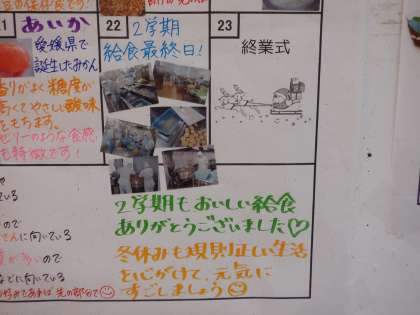 あいか
愛媛県で
誕生したみかん
香りがよく糖度が
高くてやさしい酸味
をもちます。
ゼリーのような食感
も特徴です!
22
2学期
給食最終日!
23
終業式
2学期もおいしい給食
ありがとうございました♡
冬休みも規則正しい生活
を心がけて、元気に
すごしましょう☺
ている
ので
てんに向いている
が多いので
などに向いている